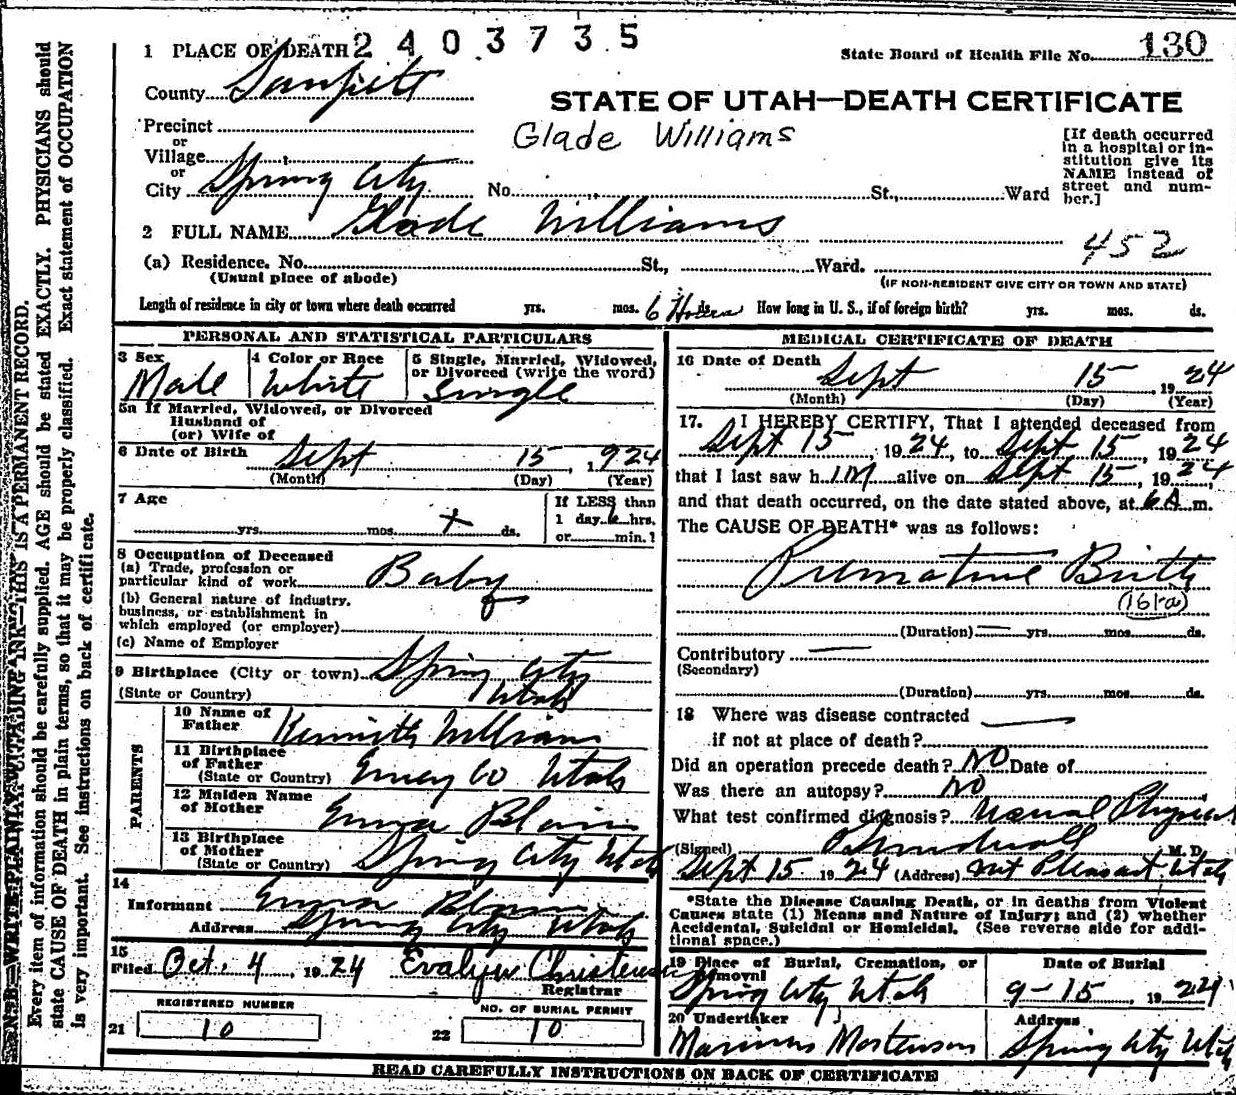 1 PLACE OF DEATH 2403735
State Board of Health File No. 130
County Sanpete
STATE OF UTAH—DEATH CERTIFICATE
Precinct
or
Village
or
City Spring City No. St., Ward
Glade Williams
[If death occurred
in a hospital or in-
stitution give its
NAME instead of
street and num-
ber.]
2 FULL NAME Glade Williams
452
(a) Residence. No. St., Ward.
(Usual place of abode) (IF NON-RESIDENT GIVE CITY OR TOWN AND STATE)
Length of residence in city or town where death occurred yrs. mos. 6 Hours ds. How long in U. S., if of foreign birth? yrs. mos. ds.
PERSONAL AND STATISTICAL PARTICULARS
3 Sex Male
4 Color or Race White
5 Single, Married, Widowed,
or Divorced (write the word)
Single
5a If Married, Widowed, or Divorced
Husband of
(or) Wife of
6 Date of Birth Sept 15, 1924
(Month) (Day) (Year)
7 Age
yrs. mos. + ds.
If LESS than
1 day 6 hrs.
or min.?
8 Occupation of Deceased
(a) Trade, profession or
particular kind of work Baby
(b) General nature of industry,
business, or establishment in
which employed (or employer)
(c) Name of Employer
9 Birthplace (City or town) Spring City
(State or Country) Utah
PARENTS
10 Name of
Father Kennith Williams
11 Birthplace
of Father
(State or Country) Emery Co Utah
12 Maiden Name
of Mother Emma Blain
13 Birthplace
of Mother
(State or Country) Spring City Utah
14
Informant Emma Blain
Address Spring City Utah
15
Filed Oct. 4, 1924 Evalyn Christensen
Registrar
REGISTERED NUMBER
21 10
NO. OF BURIAL PERMIT
22 10
MEDICAL CERTIFICATE OF DEATH
16 Date of Death Sept 15 1924
(Month) (Day) (Year)
17. I HEREBY CERTIFY, That I attended deceased from
Sept 15, 1924, to Sept 15, 1924
that I last saw h im alive on Sept 15, 1924,
and that death occurred, on the date stated above, at 6 A m.
The CAUSE OF DEATH* was as follows:
Premature Birth
(161-a)
(Duration) yrs. mos. ds.
Contributory
(Secondary)
(Duration) yrs. mos. ds.
18 Where was disease contracted
if not at place of death?
Did an operation precede death? NO Date of
Was there an autopsy? NO
What test confirmed diagnosis? Usual Physical
(Signed) M. D.
Sept 15 1924 (Address) Mt Pleasant, Utah
*State the Disease Causing Death, or in deaths from Violent
Causes state (1) Means and Nature of Injury; and (2) whether
Accidental, Suicidal or Homicidal. (See reverse side for addi-
tional space.)
19 Place of Burial, Cremation, or
Removal
Spring City Utah
Date of Burial
9-15, 1924
20 Undertaker
Marinus Mortenson
Address
Spring City Utah
READ CAREFULLY INSTRUCTIONS ON BACK OF CERTIFICATE
N. B.—WRITE PLAINLY, WITH UNFADING INK—THIS IS A PERMANENT RECORD.
Every item of information should be carefully supplied. AGE should be stated EXACTLY. PHYSICIANS should
state CAUSE OF DEATH in plain terms, so that it may be properly classified. Exact statement of OCCUPATION
is very important. See instructions on back of certificate.